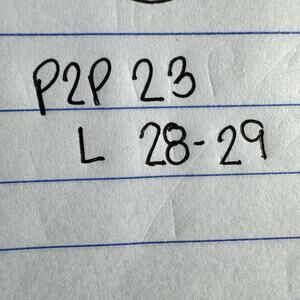 P2P 23
L 28-29